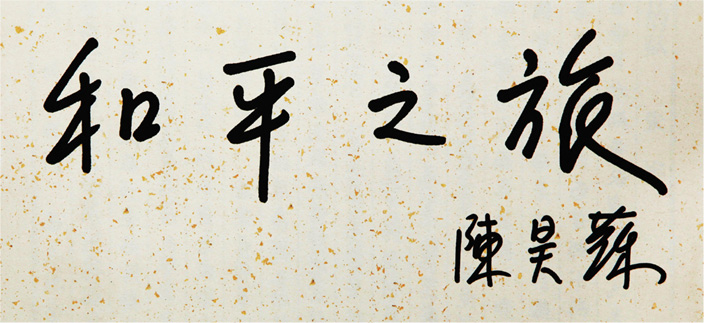 和平之旅
陳昊蘇